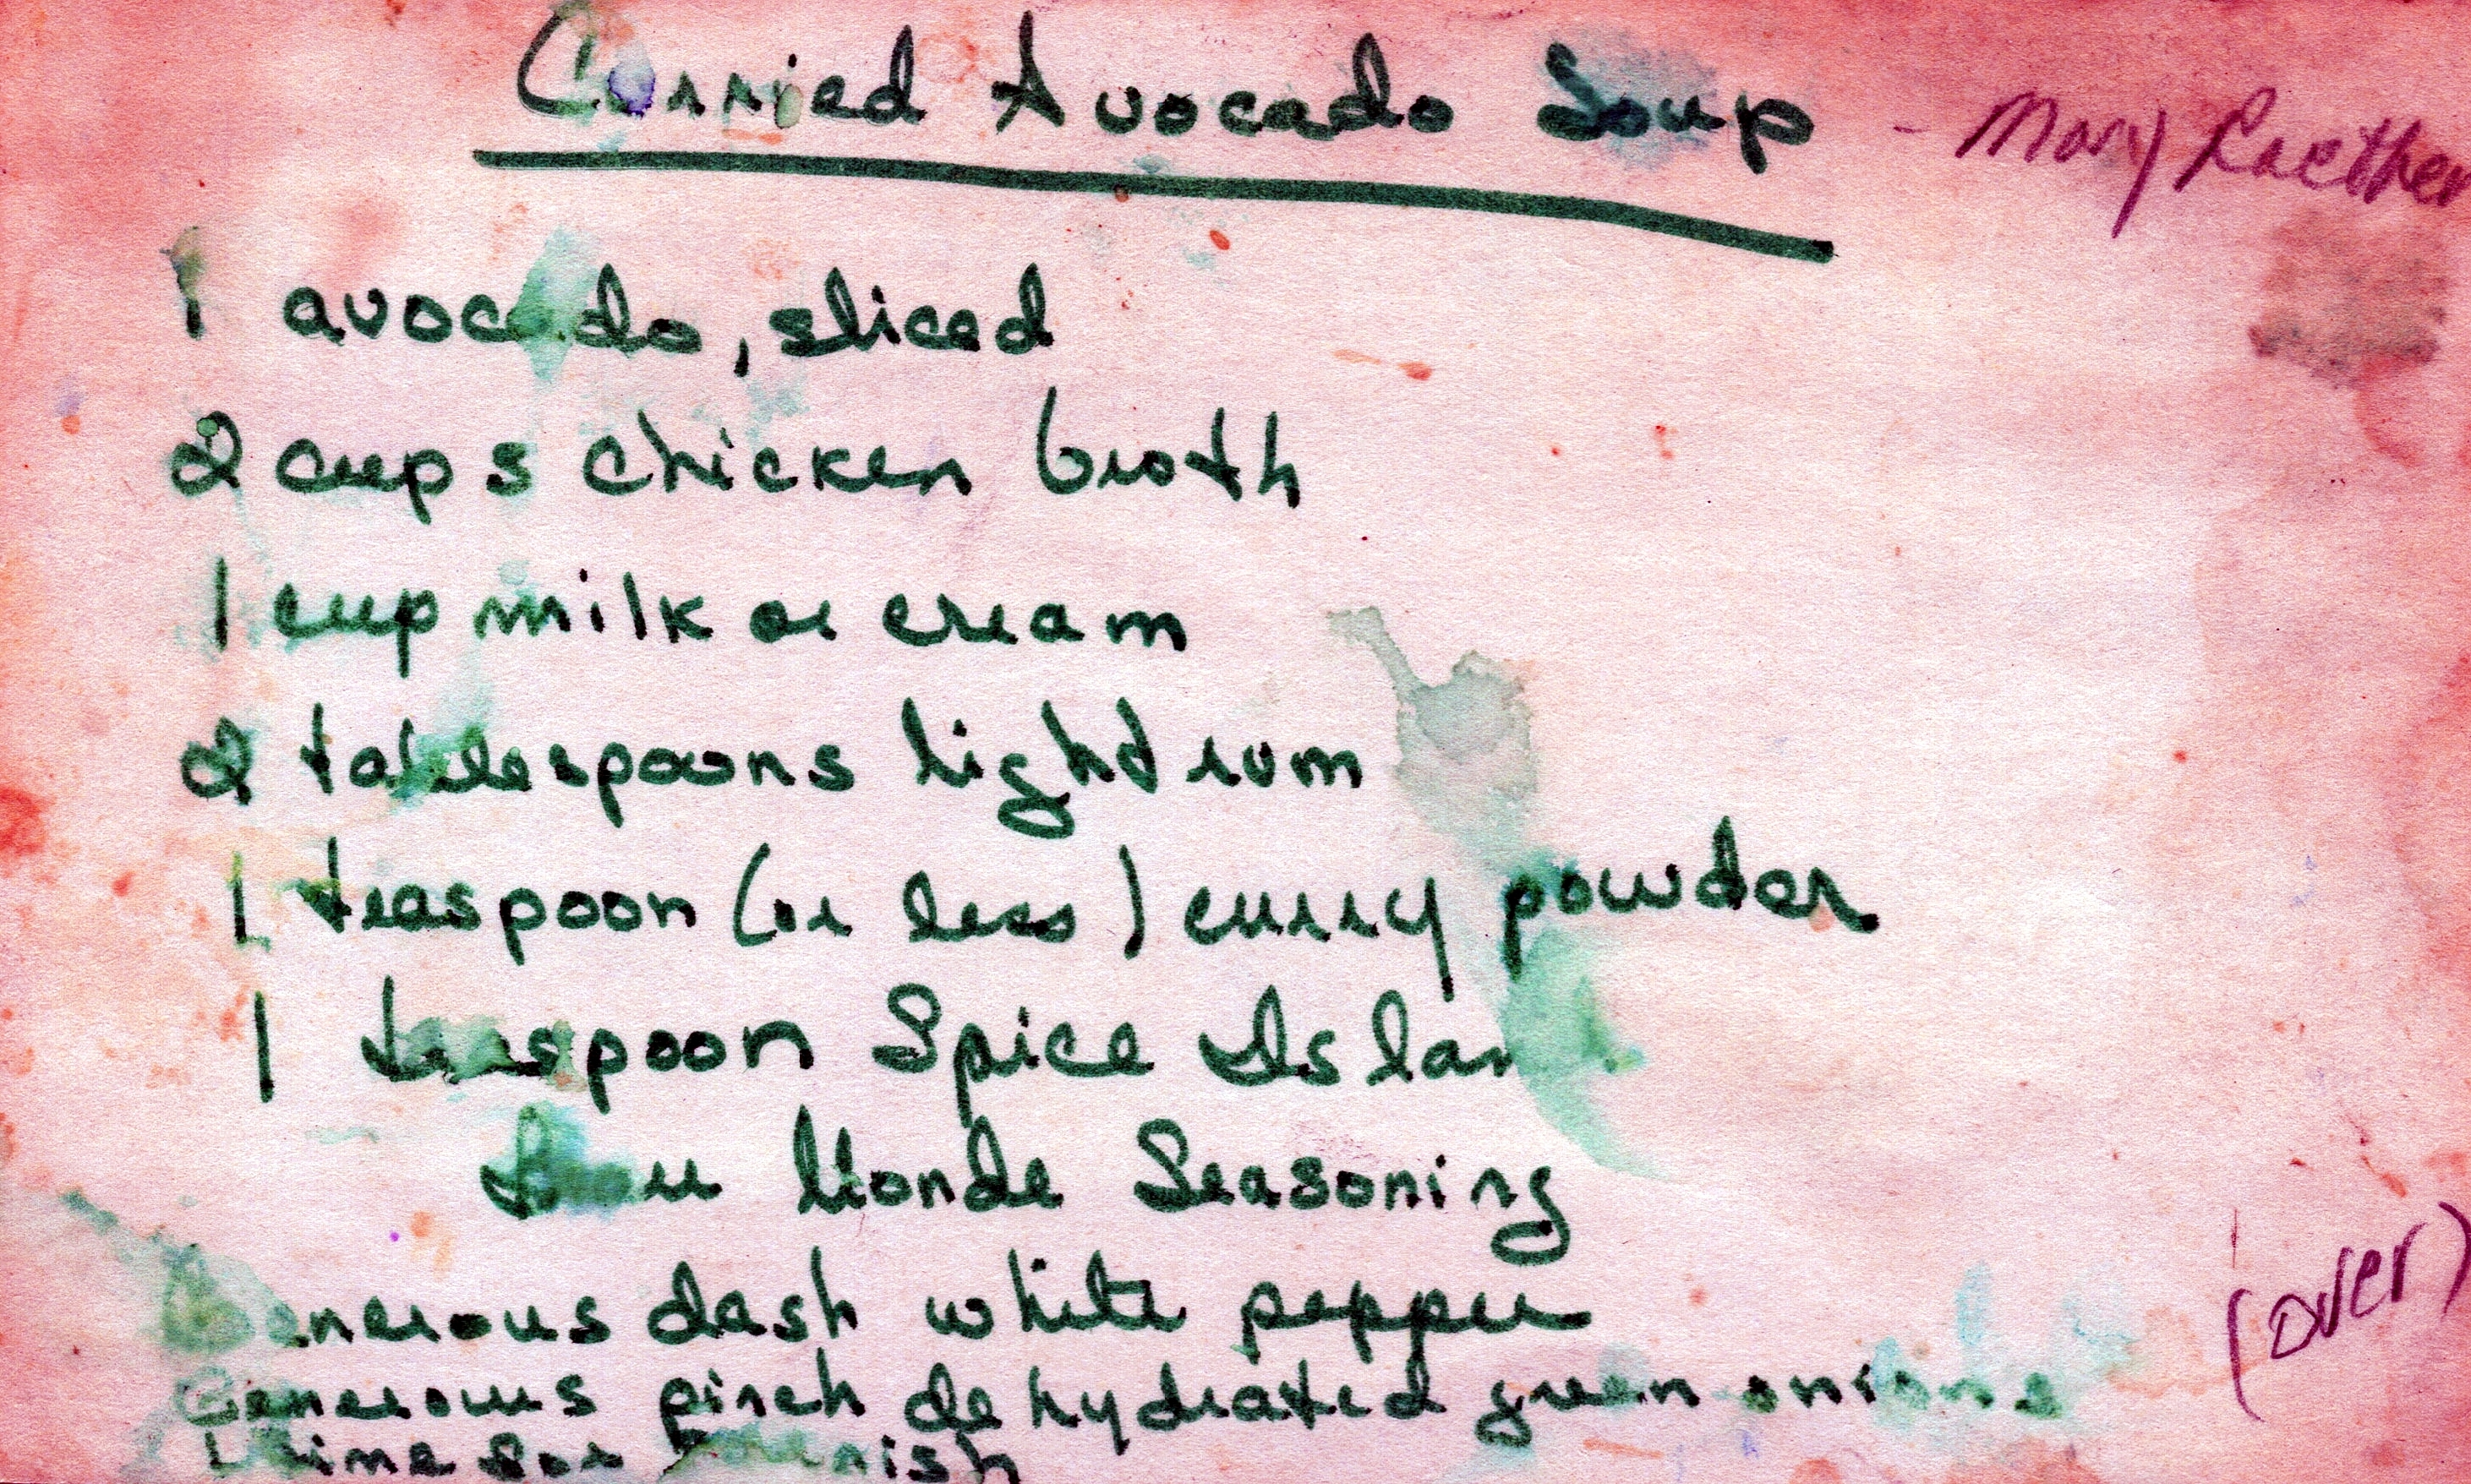 Curried Avocado Soup - Mary Raether
1 avocado, sliced
2 cups chicken broth
1 cup milk or cream
2 tablespoons light rum
1 teaspoon (or less) curry powder
1 teaspoon Spice Islands
Beau Monde Seasoning
Generous dash white pepper
Generous pinch dehydrated green onions
Lime for garnish
(over)